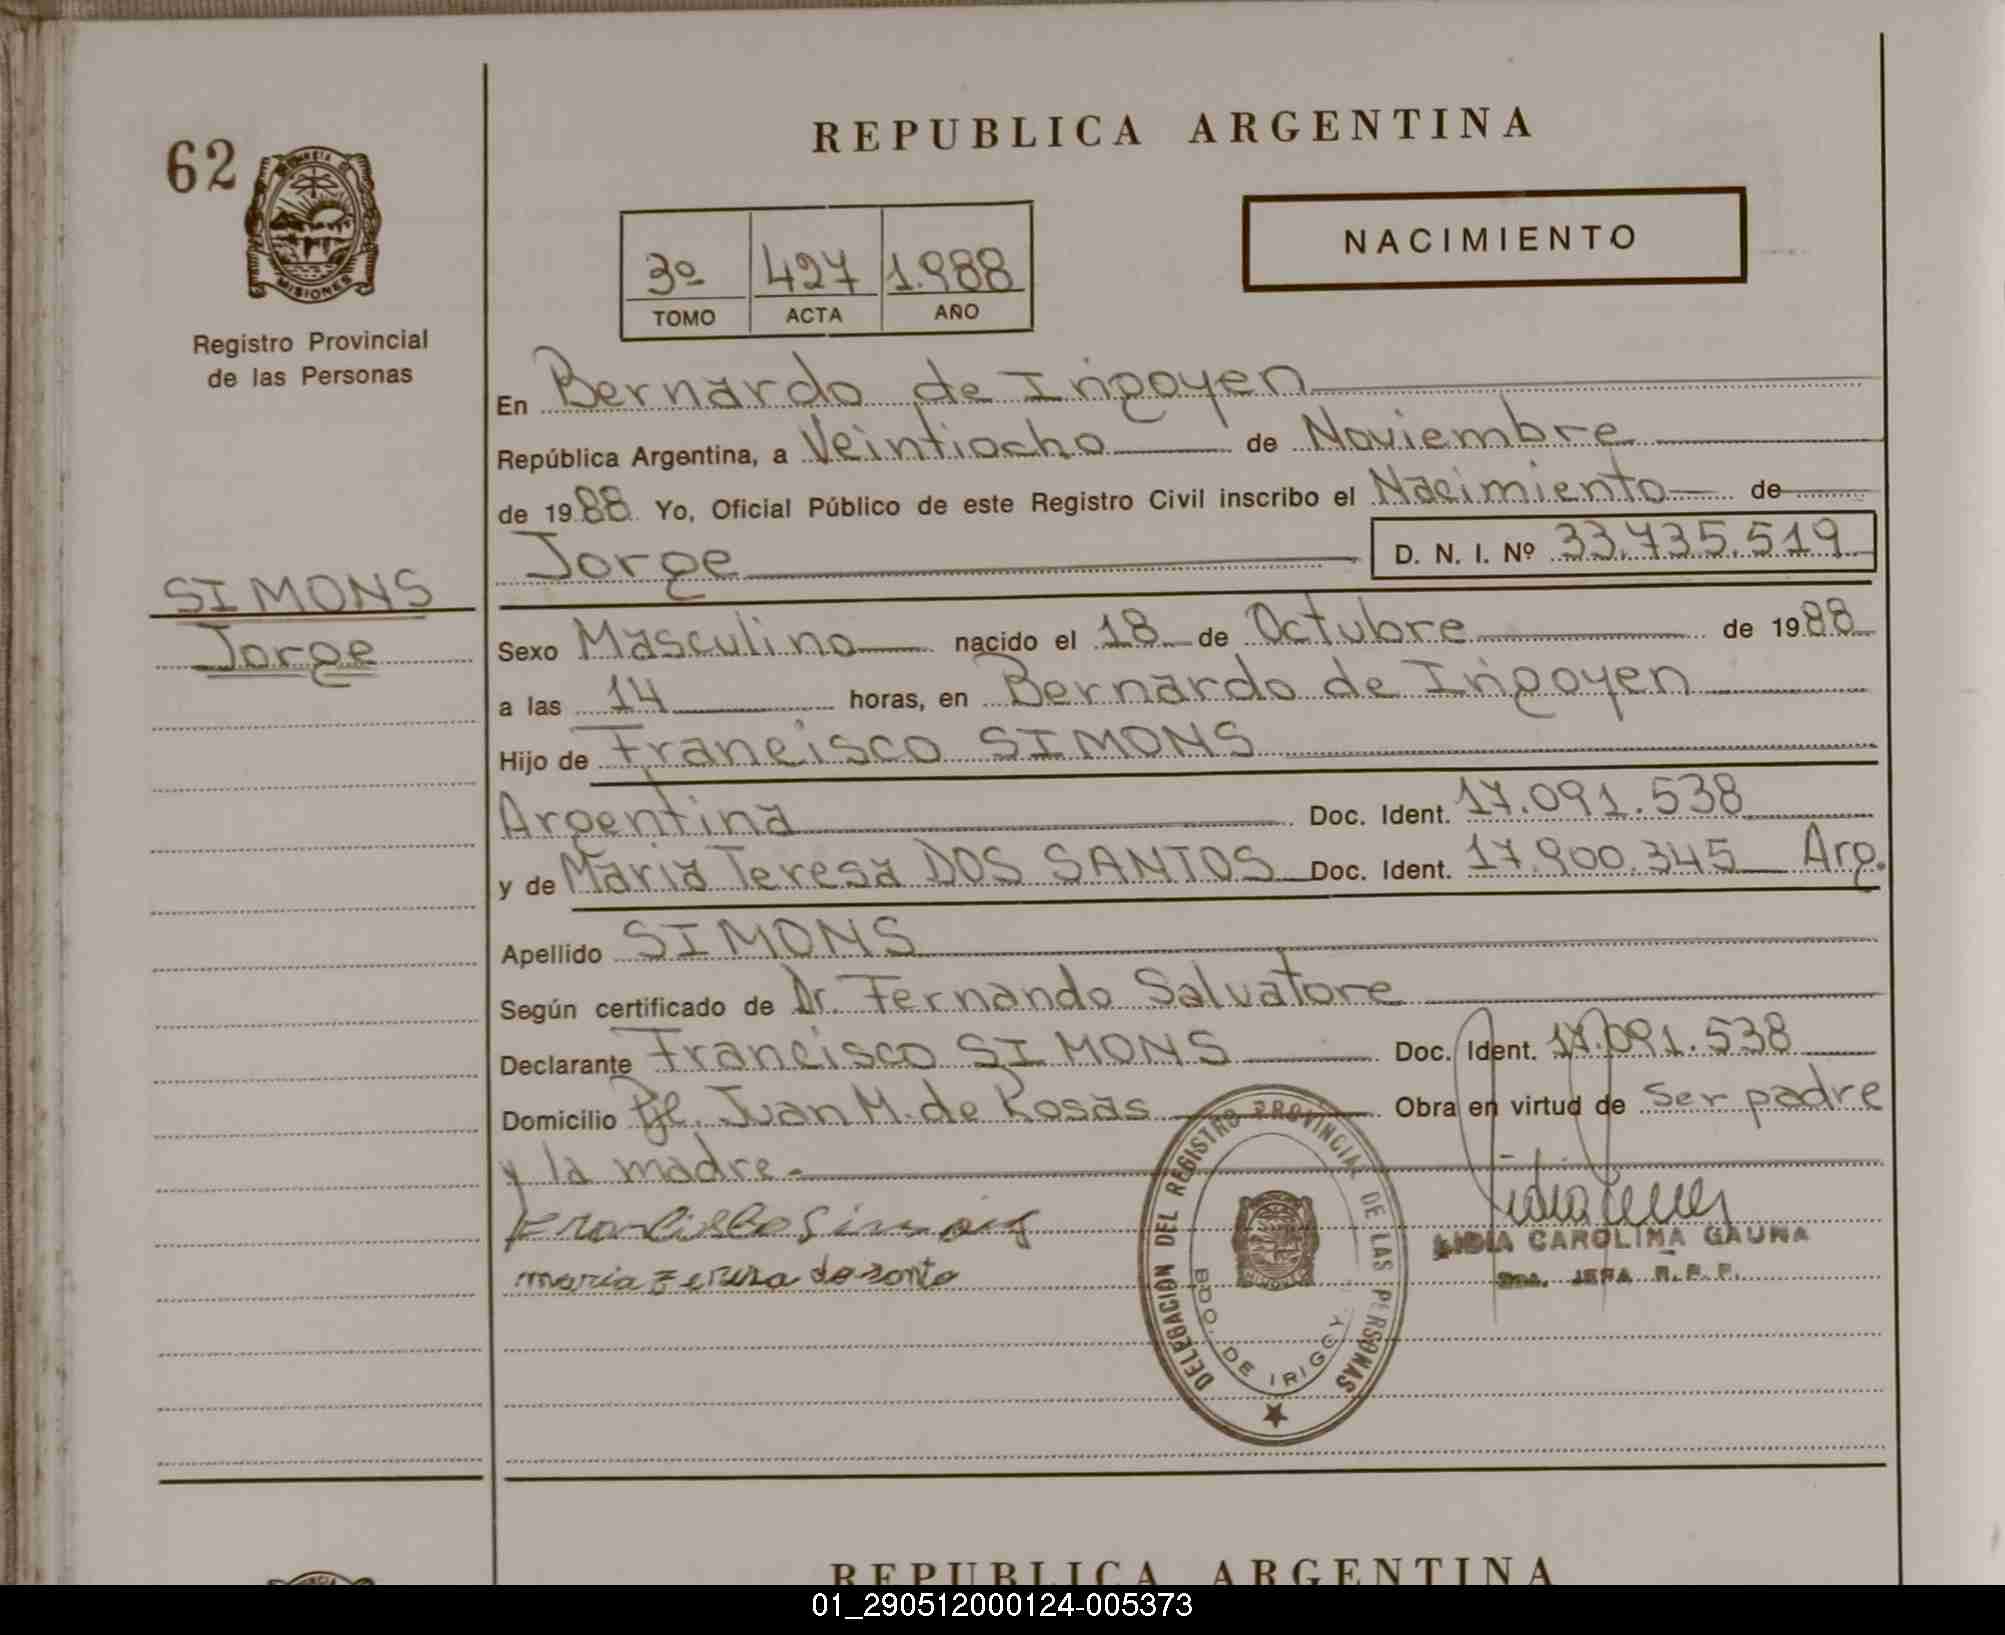 62
PROVINCIA DE
MISIONES
Registro Provincial
de las Personas
SIMONS
Jorge
REPUBLICA ARGENTINA
NACIMIENTO
3º 427 1.988
TOMO ACTA AÑO
En Bernardo de Irigoyen
República Argentina, a Veintiocho de Noviembre
de 1988 Yo, Oficial Público de este Registro Civil inscribo el Nacimiento de
Jorge D. N. I. Nº 33.735.519
Sexo Masculino nacido el 18 de Octubre de 1988
a las 14 horas, en Bernardo de Irigoyen
Hijo de Francisco SIMONS
Argentina Doc. Ident. 17.091.538
y de Maria Teresa DOS SANTOS Doc. Ident. 17.900.345 Arg.
Apellido SIMONS
Según certificado de Dr. Fernando Salvatore
Declarante Francisco SIMONS Doc. Ident. 17.091.538
Domicilio Pje. Juan M. de Rosas Obra en virtud de ser padre
y la madre.-
maria tereza do santo
DELEGACION DEL REGISTRO PROVINCIAL DE LAS PERSONAS
BDO. DE IRIGOY
LIDIA CAROLINA GAUNA
JEFA R.P.P.
REPUBLICA ARGENTINA
01_290512000124-005373